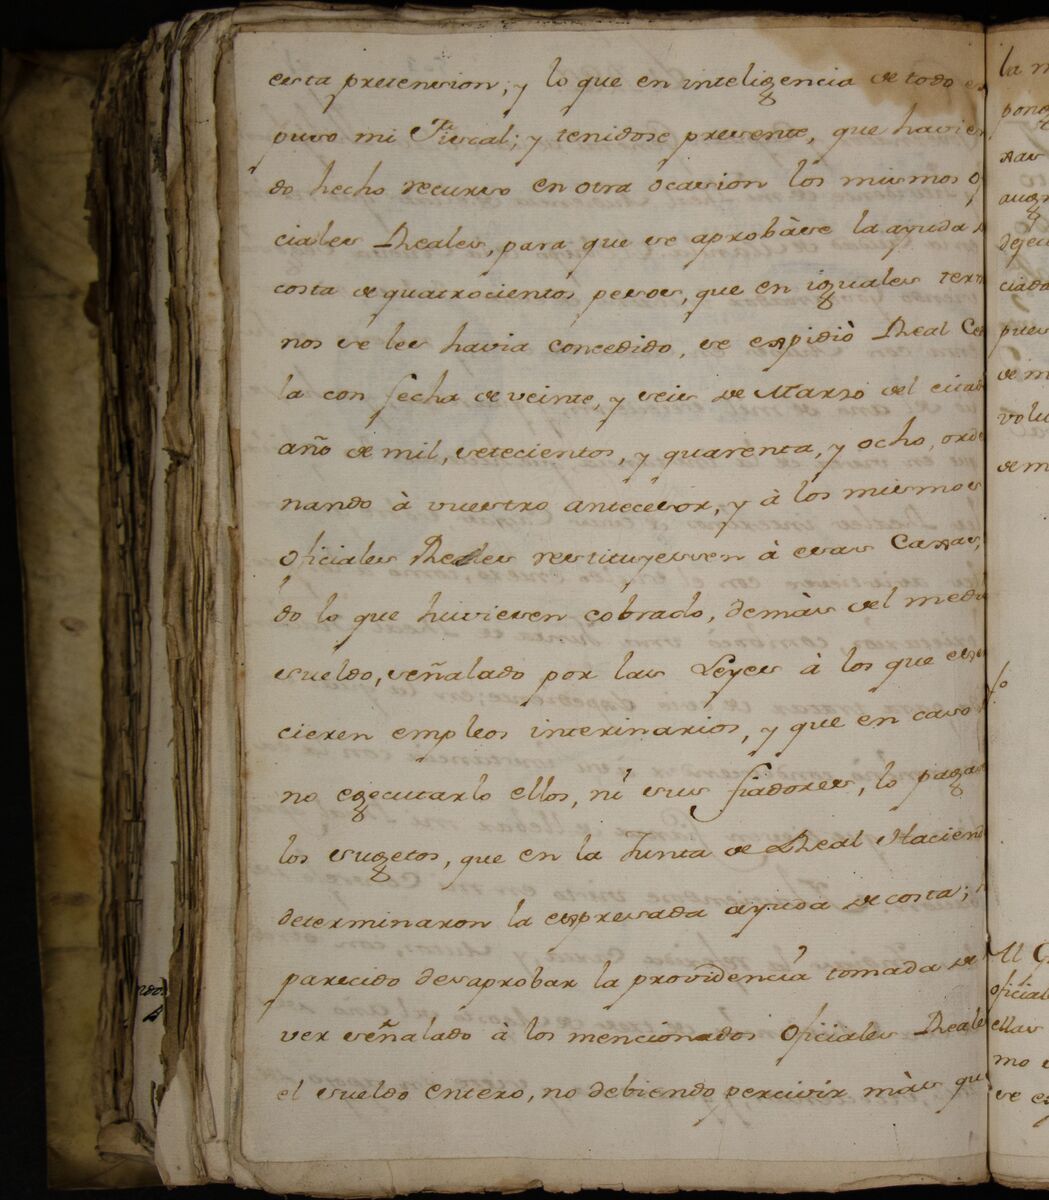 esta pretension; y lo que en inteligencia de todo ex
puso mi Fiscal; y tenidose presente, que havien
do hecho recurso en otra ócasion los mismos Ofi
ciales Reales, para que se aprobàse la ayuda
costa de quatrocientos pesos, que en iguales term
nos se les havia concedido, se expidiò Real Ce
la con fecha de veinte, y seis de Marzo del citad
año de mil, setecientos, y quarenta, y ocho, orde
nando à vuestro antecesor, y à los mismos
Oficiales Reales restituyessen à esas Caxas,
do lo que huviesen cobrado, demàs del med
sueldo, señalado por las Leyes à los que exer
cieren empleos interinarios, y que en caso
no egecutarlo ellos, ni sus fiadores, lo pagas
los sugetos, que en la Junta de Real Haciend
determinaron la expresada ayuda de costa;
parecido desaprobar la providencia tomada de
ver señalado à los mencionados Oficiales Reale
el sueldo entero, no debiendo percivir màs qu
la m
pong
xas
aug
dejec
ciada
pues
de m
volu
de m
fo
Al G
oficial
ellas
mo
se e